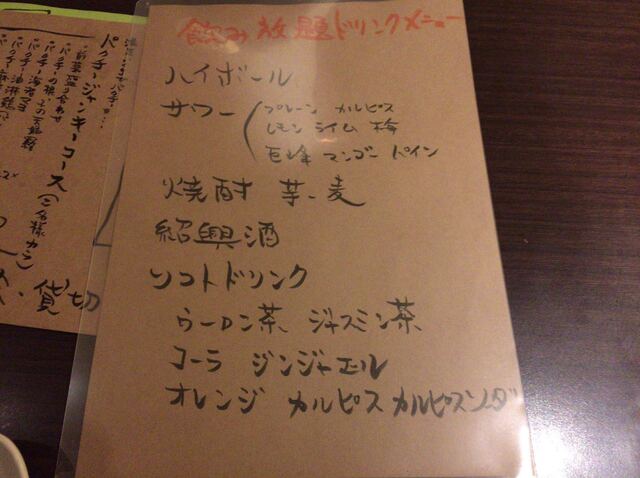 飲み放題ドリンクメニュー
ハイボール
サワー
プレーン カルピス
レモン ライム 梅
巨峰 マンゴー パイン
焼酎 芋、麦
紹興酒
ソフトドリンク
ウーロン茶、ジャスミン茶、
コーラ ジンジャエル
オレンジ カルピス カルピスソーダ
パクチージャンキーコース
(2名様から)
・前菜盛り合わせ
・パクチー海老マヨ
貸切